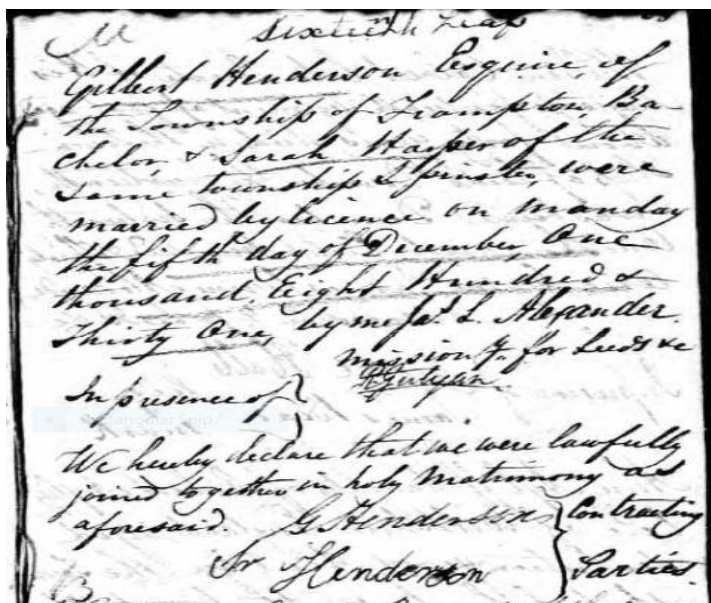 M
Sixteenth Leaf
Gilbert Henderson Esquire, of
the Township of Frampton, Ba
chelor, & Sarah Harper of the
same township Spinster, were
married by licence on Monday
the fifth day of December, One
thousand, Eight Hundred &
Thirty One, by me Jas. L. Alexander.
Missiony. for Leeds &c
In presence of }
We hereby declare that we were lawfully
joined together in holy Matrimony as
aforesaid. G Henderson } Contracting
Henderson } Parties.
B